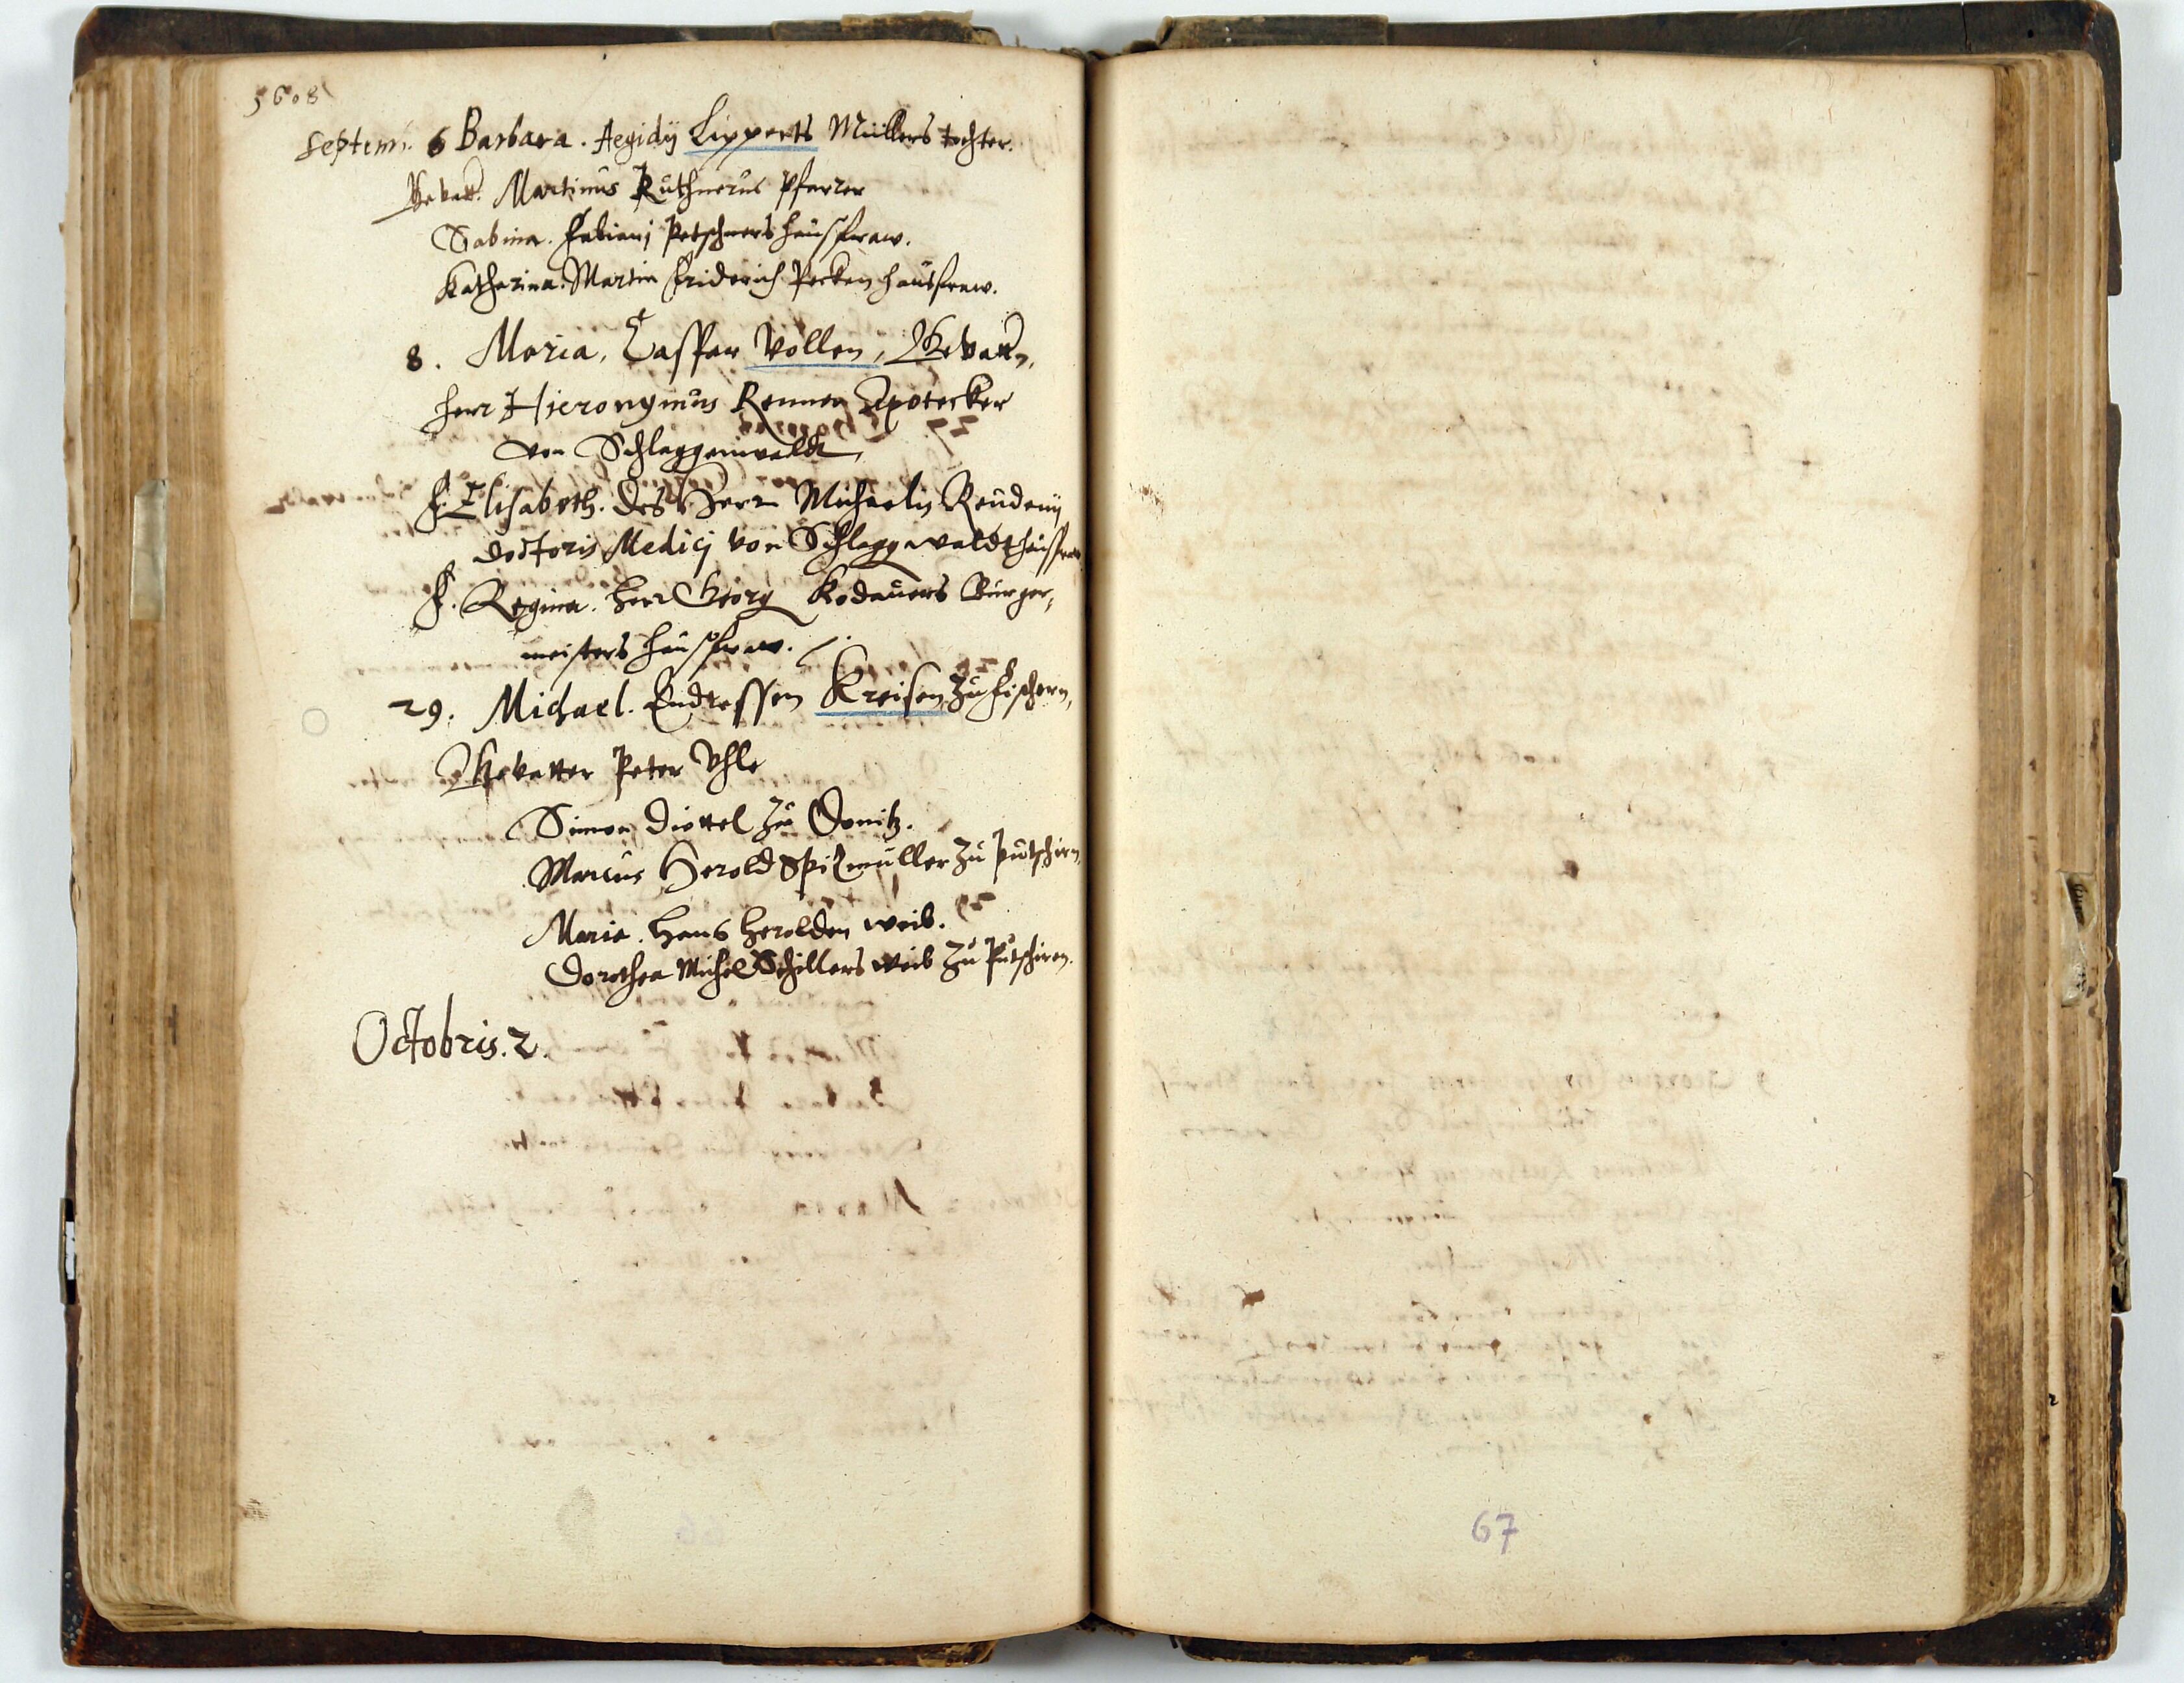 1608
Septemb. 6 Barbara. Aegidij Lipperts Müllers tochter.
Gevatt. Martinus Ruthnerus Pfarrer
Sabina. Fabianj Petschners hausfraw.
Katharina. Martin Friderich Pecken hausfraw.
8. Maria, Caspar Vollen, Gevattn.
herr Hieronymus Renner Apotecker
von Schlaggenwaldt,
F. Elisabeth. des Herrn Michaelis Reudenij
doctoris Medicj von Schlaggwaldt hausfraw
F. Regina. herr Georg Kodauers Burger,
meisters hausfraw.
29. Michael. Endressen Kreisen zu Fischern,
Gevatter Peter Uhle
Simon Diettel zu Donitz.
Marcus Herold Spitzmüller zu Putschirn,
Maria. Hans Herolden weib.
Dorothea Michel Schillers weib zu Putschiren.
Octobris. 2.
67